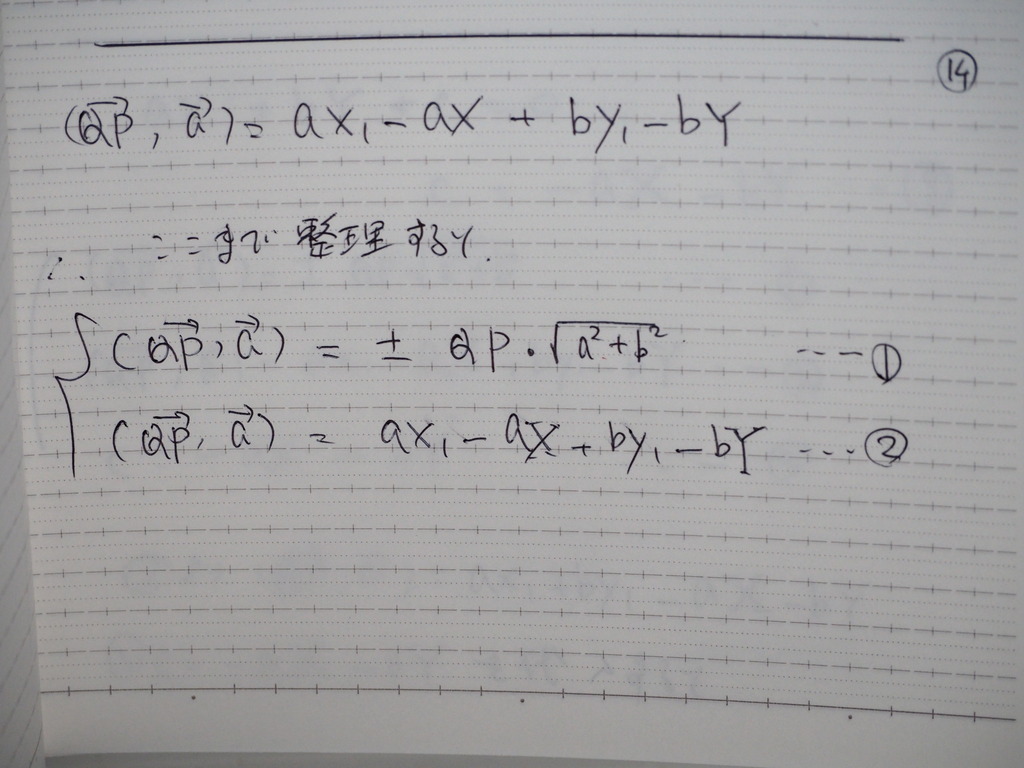 ⑭
(QP→, a→) = ax₁ - aX + by₁ - bY
∴ ここまで整理すると.
(QP→, a→) = ± QP・√a²+b² ---①
(QP→, a→) = ax₁ - aX + by₁ - bY ---②